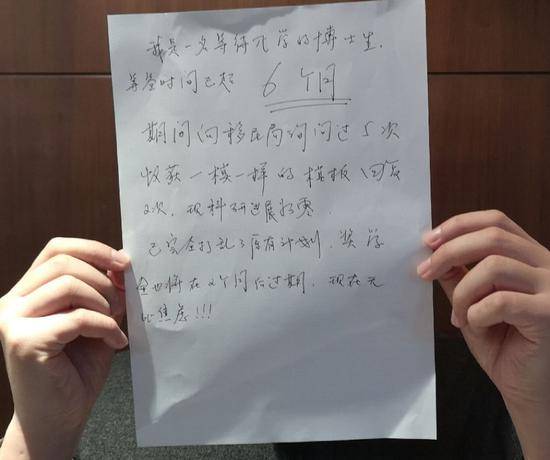 我是一名等待入学的博士生,
等签时间已超 6个月
期间向移民局询问过5次
收获一模一样的模板回复
2次,现科研进展为零.
已完全打乱了原有计划,奖学
金也将在2个月后过期,现在无
比焦虑!!!